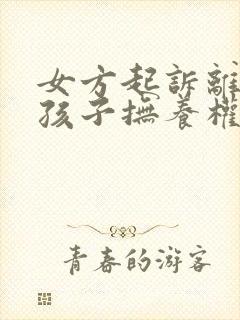 女方起訴離
孩子撫養權
青春的游客